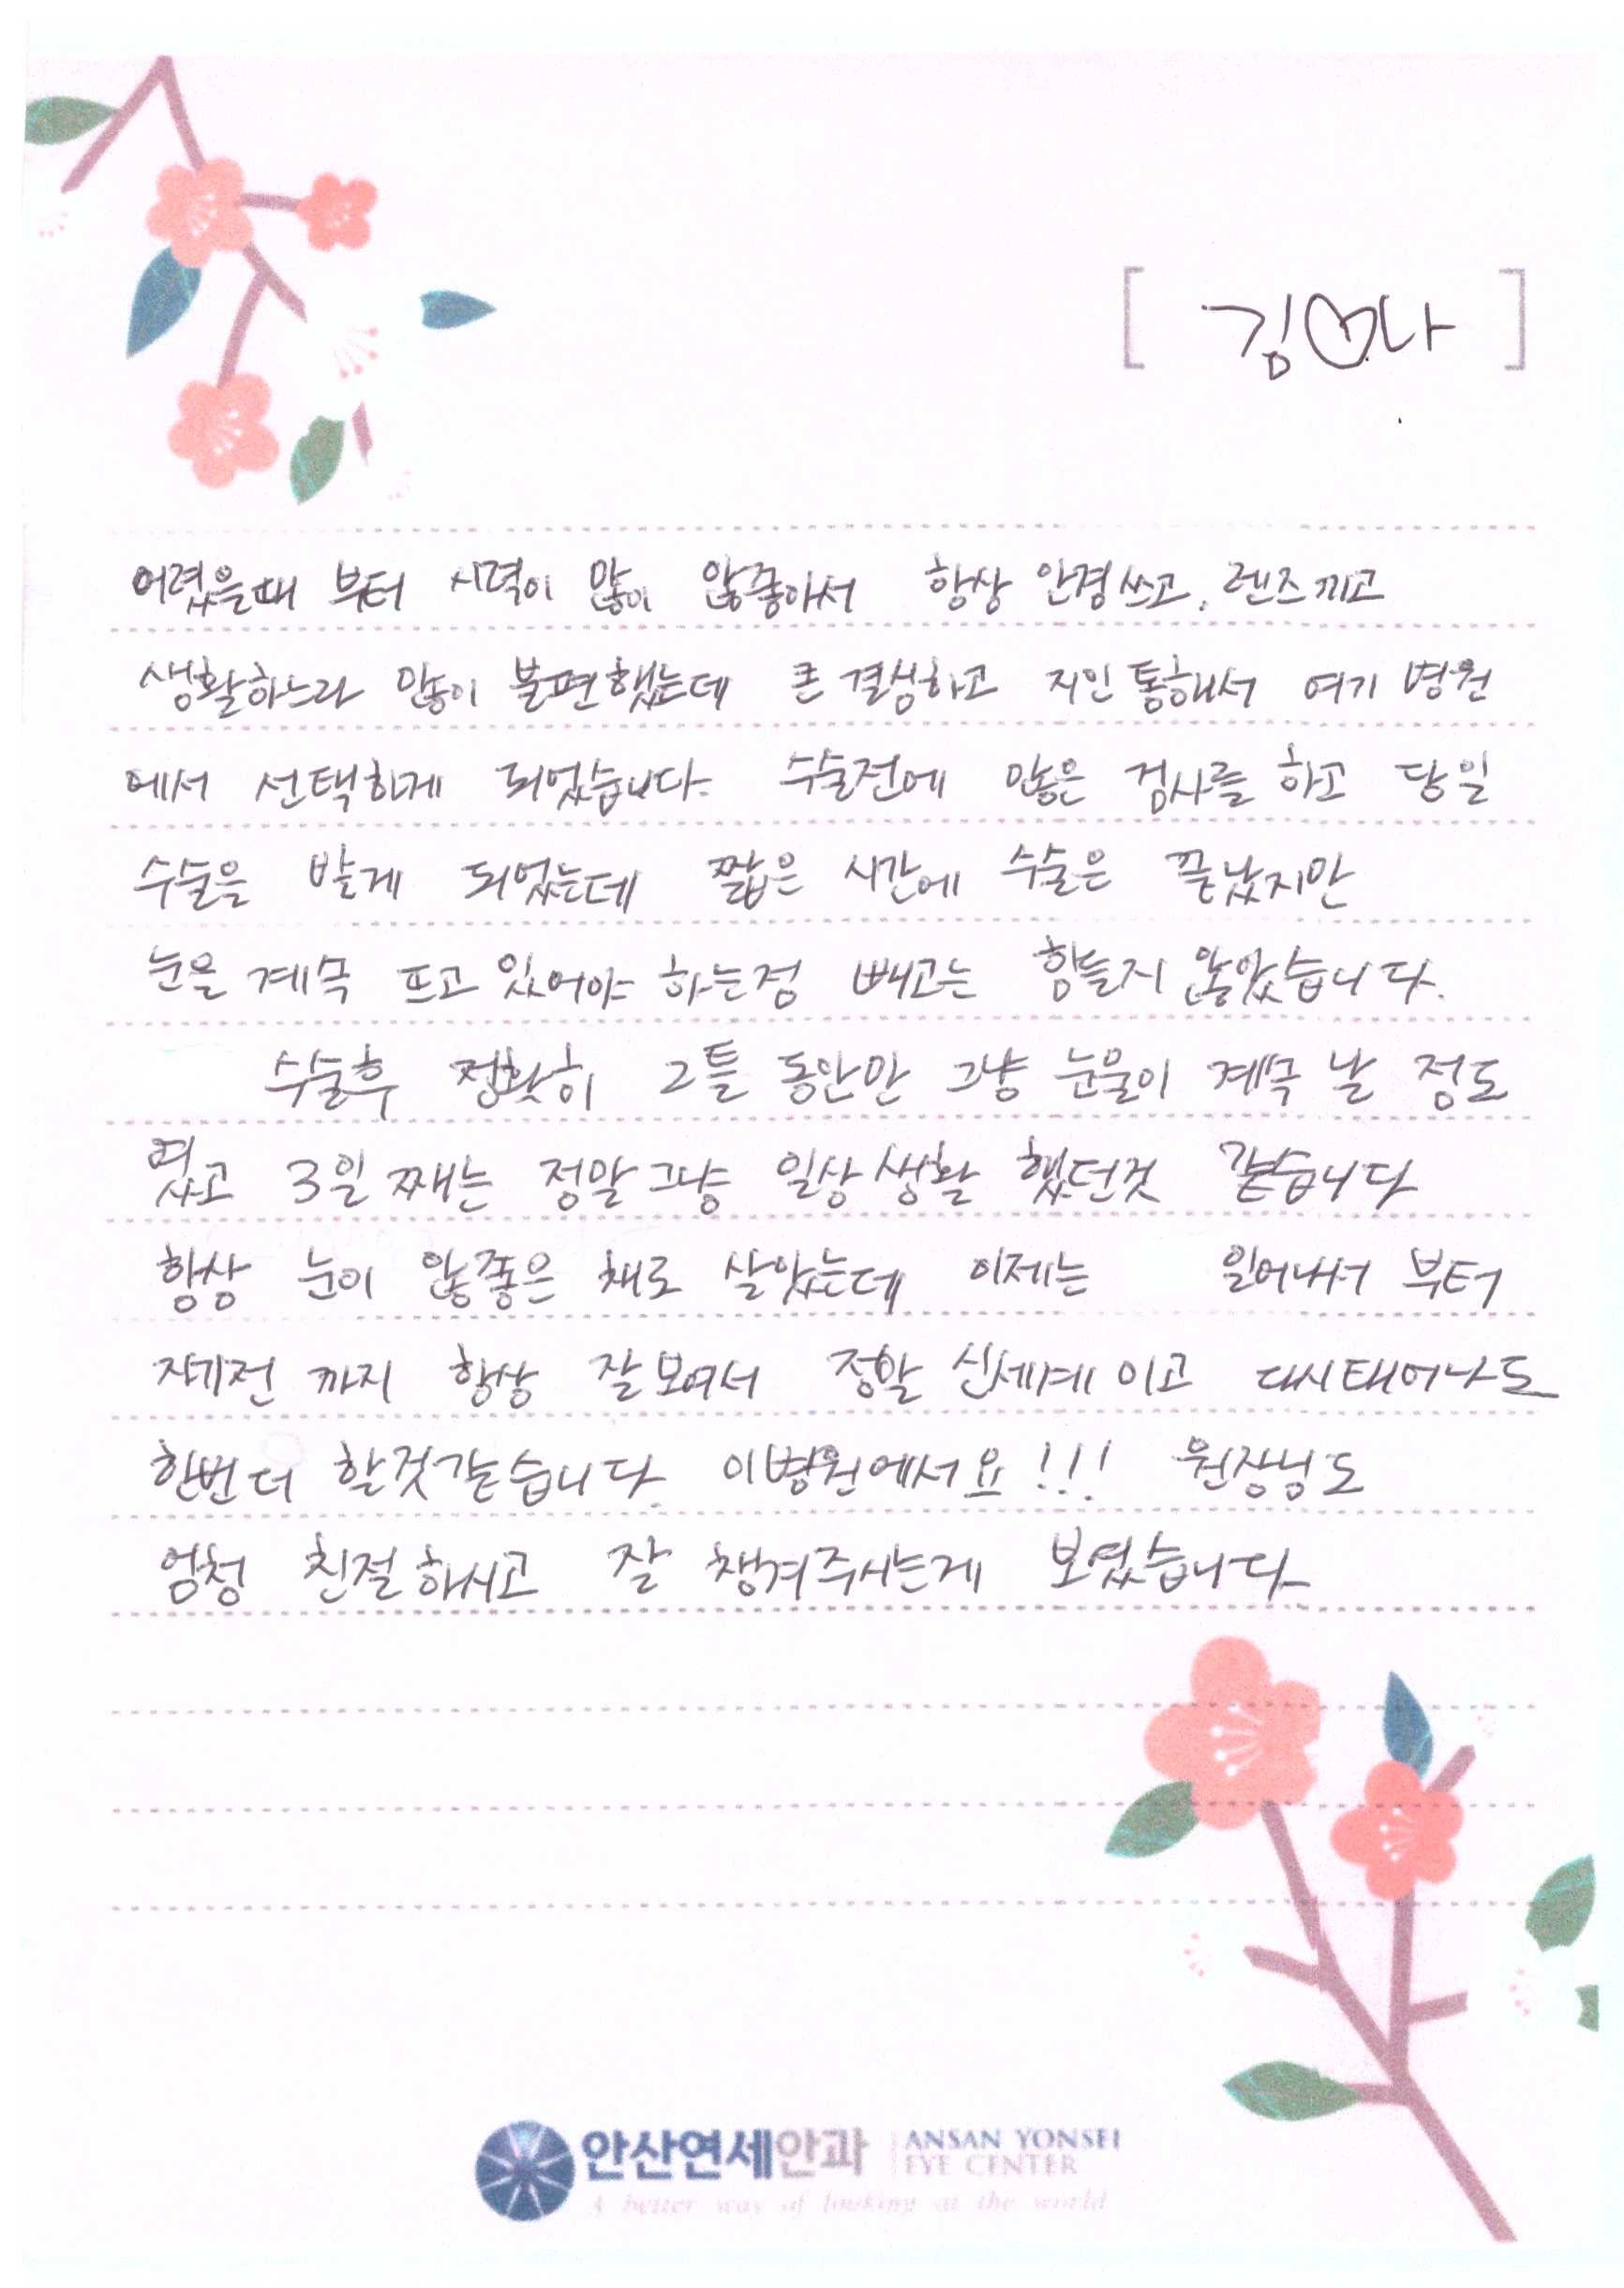 [ 김♡나 ]
어렸을때 부터 시력이 많이 않좋아서 항상 안경쓰고, 렌즈끼고
생활하느라 많이 불편했는데 큰 결심하고 지인 통해서 여기 병원
에서 선택하게 되었습니다. 수술전에 많은 검사를 하고 당일
수술을 받게 되었는데 짧은 시간에 수술은 끝났지만
눈을 계속 뜨고 있어야 하는점 빼고는 힘들지 않았습니다.
수술후 정확히 2틀 동안만 그냥 눈물이 계속 날 정도
였고 3일 째는 정말 그냥 일상생활 했던것 같습니다
항상 눈이 않좋은 채로 살았는데 이제는 일어나서 부터
자기전 까지 항상 잘보여서 정말 신세계 이고 다시태어나도
한번더 할것같습니다. 이병원에서요!!! 원장님도
엄청 친절하시고 잘 챙겨주시는게 보였습니다.
안산연세안과 ANSAN YONSEI
EYE CENTER
A better way of looking at the world